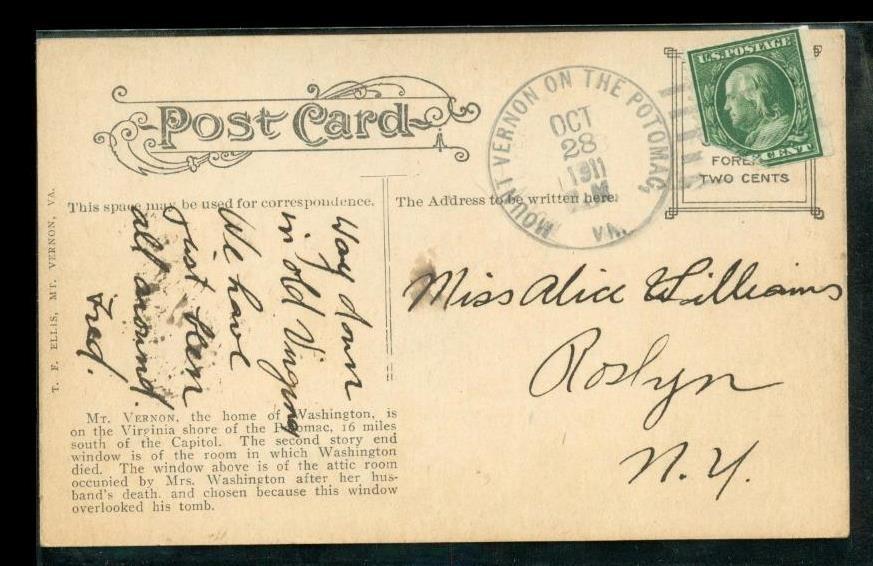 Post Card
MOUNT VERNON ON THE POTOMAC, VA.
OCT
28
1911
U.S. POSTAGE
CENT
TWO CENTS
This space may be used for correspondence.
The Address to be written here.
T. F. ELLIS, MT. VERNON, VA.
Way down
in old Virginny
We have
Just been
all around.
Fred.
Miss Alice Williams
Roslyn
N.Y.
MT. VERNON, the home of Washington, is
on the Virginia shore of the Potomac, 16 miles
south of the Capitol. The second story end
window is of the room in which Washington
died. The window above is of the attic room
occupied by Mrs. Washington after her hus-
band's death, and chosen because this window
overlooked his tomb.